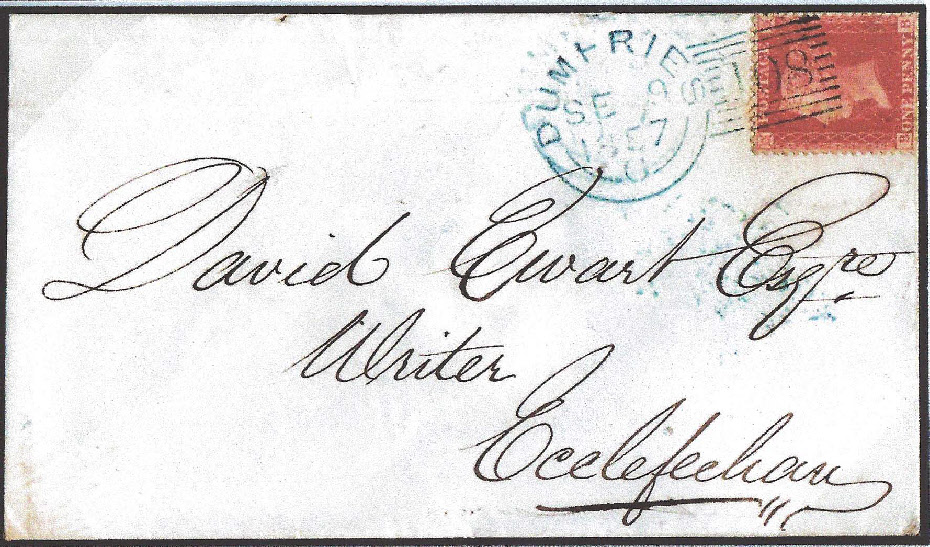 DUMFRIES
SE 9
1857
108
ONE PENNY
David Ewart Esqre
Writer
Ecclefechan